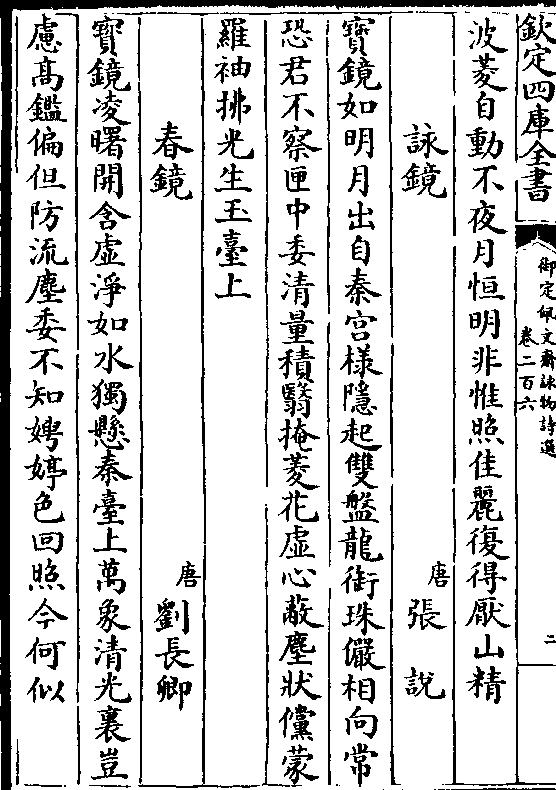 欽定四庫全書
御定佩文齋詠物詩選
卷二百六
二
波菱自動不夜月恒明非惟照佳麗復得厭山精
詠鏡
唐
張說
寶鏡如明月出自秦宫様隱起雙盤龍銜珠儼相向常
恐君不察匣中委清量積翳掩菱花虚心蔽塵狀儻蒙
羅袖拂光生玉臺上
春鏡
唐
劉長卿
寶鏡凌曙開含虚淨如水獨懸秦臺上萬象清光裏豈
慮髙鑑偏但防流塵委不知娉婷色回照今何似